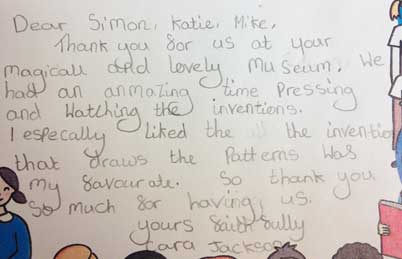 Dear Simon, Katie, Mike,
Thank you for us at your
magicall and lovely museum. We
had an anmazing time Pressing
and Watching the inventions.
I especally liked the the inventio
that draws the Patterns Was
my favourate. So thank you
So much for having us.
yours faith fully
Cara Jackson